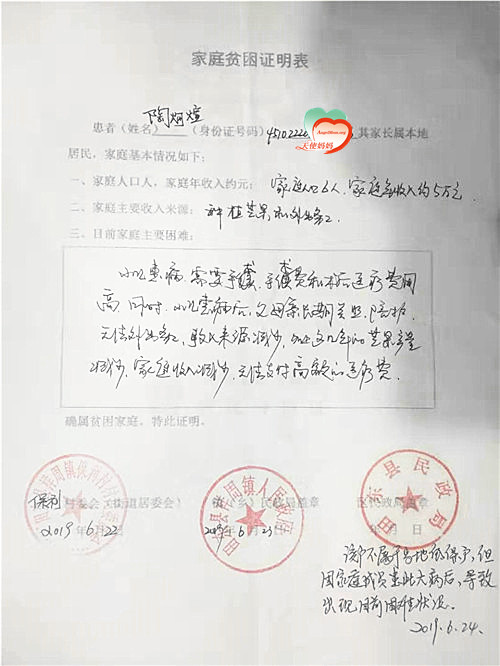 家庭贫困证明表
患者（姓名）陶炯煊（身份证号码）4510222 其家长属本地
AngelMom.org
天使妈妈
居民，家庭基本情况如下：
一、家庭人口人，家庭年收入约元： 家庭人口6人，家庭年收入约5万元
二、家庭主要收入来源： 种植芒果和外出务工
三、目前家庭主要困难：
小儿患病需要手术，手术费和术后医疗费用
高，同时，小儿患病后，父母亲长期关照、陪护，
无法外出务工，收入来源减少，加上这几年的芒果产量
减少，家庭收入减少，无法支付高额的医疗费。
确属贫困家庭。特此证明。
村委会（街道居委会） 镇（乡）民政局盖章 区代政局盖章
2019年6月22 2019年6月23 年 月 日
田东县民政局
该户不属于当地低保户，但
因家庭成员患此大病后，导致
出现目前困难状况。
2019.6.24.